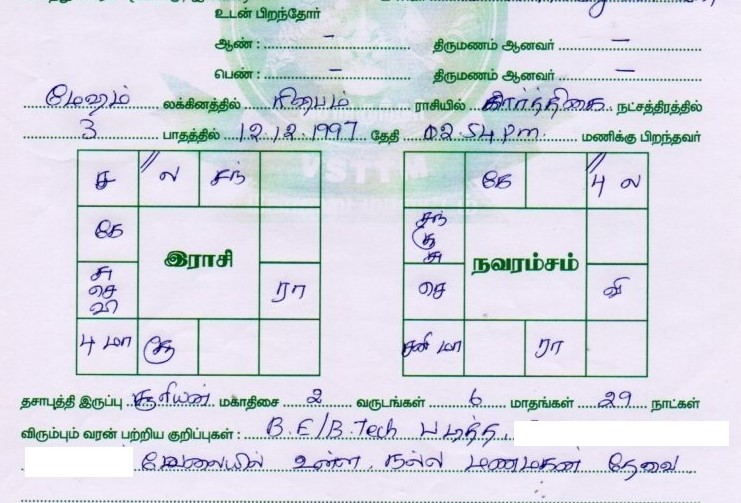 உடன் பிறந்தோர்
ஆண் : – திருமணம் ஆனவர் –
பெண் : – திருமணம் ஆனவர் –
மேஷம் லக்கினத்தில் ரிஷபம் ராசியில் கார்த்திகை நட்சத்திரத்தில்
3 பாதத்தில் 12.12.1997 தேதி 02.54 pm மணிக்கு பிறந்தவர்
ச // ல சந்
கே
இராசி
சு
செ
வி
ரா
4 மா சூ
கே // 4 ல
சந்
சூ
சு
நவரம்சம்
செ
வி
சனி மா ரா
தசாபுத்தி இருப்பு சூரியன் மகாதிசை 2 வருடங்கள் 6 மாதங்கள் 29 நாட்கள்
விரும்பும் வரன் பற்றிய குறிப்புகள் : B.E/B.Tech படித்த
வேலையில் உள்ள, நல்ல மணமகன் தேவை.